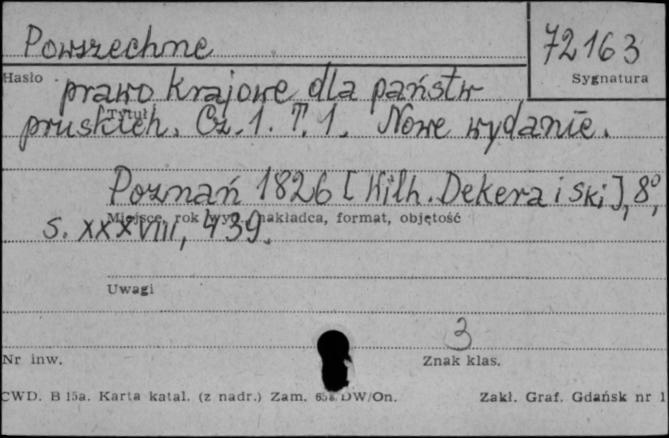 Powszechne
72163
Hasło
Sygnatura
prawo krajowe dla państw
Tytuł
pruskich. Cz. 1. T. 1. Nowe wydanie.
Poznań 1826 [Wilh. Dekera i Ski], 8°,
Miejsce, rok wyd., nakładca, format, objętość
s. XXXVIII, 439.
Uwagi
3
Nr inw.
Znak klas.
CWD. B 15a. Karta katal. (z nadr.) Zam. DW/On.
Zakł. Graf. Gdańsk nr 1